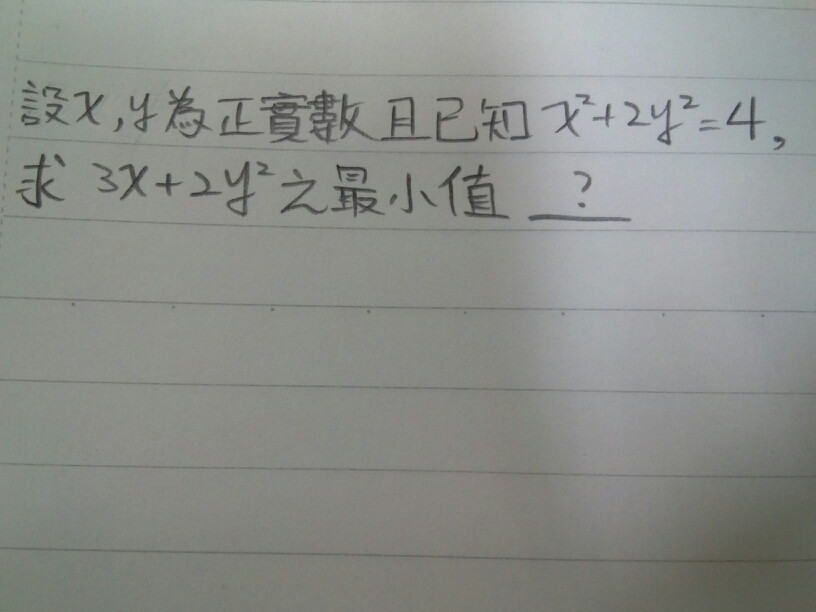 設x,y為正實數且已知x²+2y²=4,
求 3x+2y²之最小值 ?